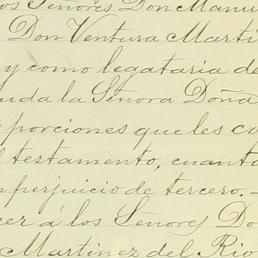 os Señores Don Manu
Don Ventura Martí
y como legataria de
uda la Señora Doña
porciones que les co
l testamento, cuanto
perjuicio de tercero.-
cer á los Señores Do
Martinez del Rio